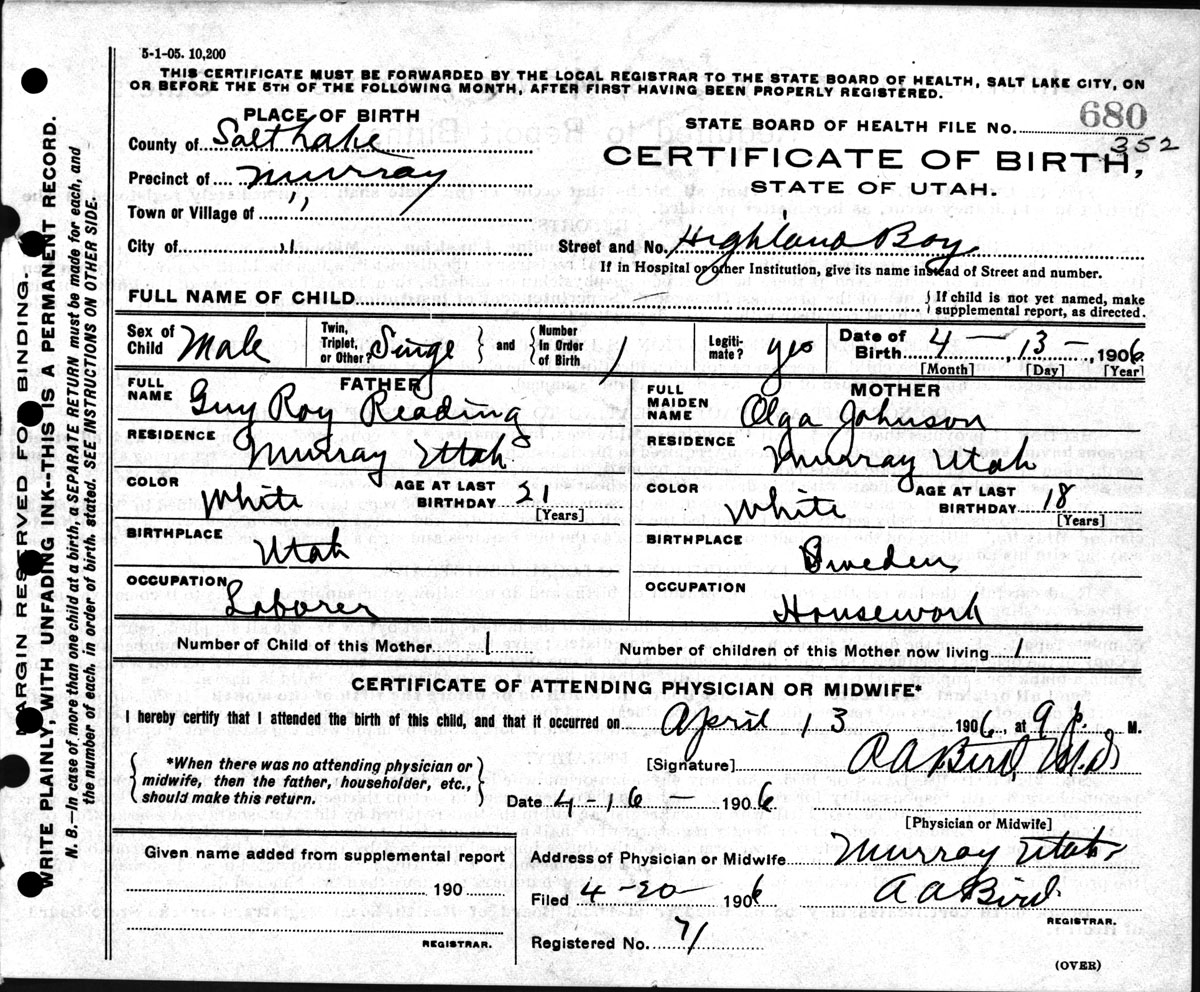 5-1-05. 10,200
THIS CERTIFICATE MUST BE FORWARDED BY THE LOCAL REGISTRAR TO THE STATE BOARD OF HEALTH, SALT LAKE CITY, ON
OR BEFORE THE 5TH OF THE FOLLOWING MONTH, AFTER FIRST HAVING BEEN PROPERLY REGISTERED.
PLACE OF BIRTH
County of Salt Lake
Precinct of Murray
Town or Village of ,,
City of ,,
STATE BOARD OF HEALTH FILE NO. 680
352
CERTIFICATE OF BIRTH,
STATE OF UTAH.
Street and No. Highland Boy
If in Hospital or other Institution, give its name instead of Street and number.
FULL NAME OF CHILD — { If child is not yet named, make supplemental report, as directed.
Sex of Child Male Twin, Triplet, or Other? Singl } and { Number in Order of Birth 1 Legiti-mate? yes Date of Birth 4 — 13 — 1906
[Month] [Day] [Year]
FATHER
FULL NAME Guy Roy Reading
RESIDENCE Murray Utah
COLOR White AGE AT LAST BIRTHDAY 21 [Years]
BIRTHPLACE Utah
OCCUPATION Laborer
MOTHER
FULL MAIDEN NAME Olga Johnson
RESIDENCE Murray Utah
COLOR White AGE AT LAST BIRTHDAY 18 [Years]
BIRTHPLACE Sweden
OCCUPATION Housework
Number of Child of this Mother 1 Number of children of this Mother now living 1
CERTIFICATE OF ATTENDING PHYSICIAN OR MIDWIFE*
I hereby certify that I attended the birth of this child, and that it occurred on April 13 1906, at 9 p. M.
{ *When there was no attending physician or midwife, then the father, householder, etc., should make this return. }
[Signature] A A Bird, M.D.
Date 4-16- 1906
[Physician or Midwife]
Given name added from supplemental report
190
REGISTRAR.
Address of Physician or Midwife Murray Utah
Filed 4-20- 1906 A A Bird
REGISTRAR.
Registered No. 71
(OVER)
MARGIN RESERVED FOR BINDING.
WRITE PLAINLY, WITH UNFADING INK--THIS IS A PERMANENT RECORD.
N. B.—In case of more than one child at a birth, a SEPARATE RETURN must be made for each, and
the number of each, in order of birth, stated. SEE INSTRUCTIONS ON OTHER SIDE.